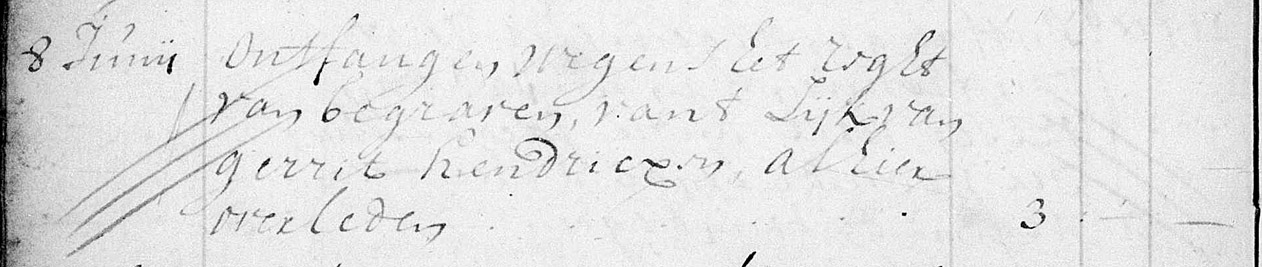 8 Junii Ontfangen wegens het regt
van begraven, vant Lijk van
gerrit hendricxen, alhier
overleden 3 - -